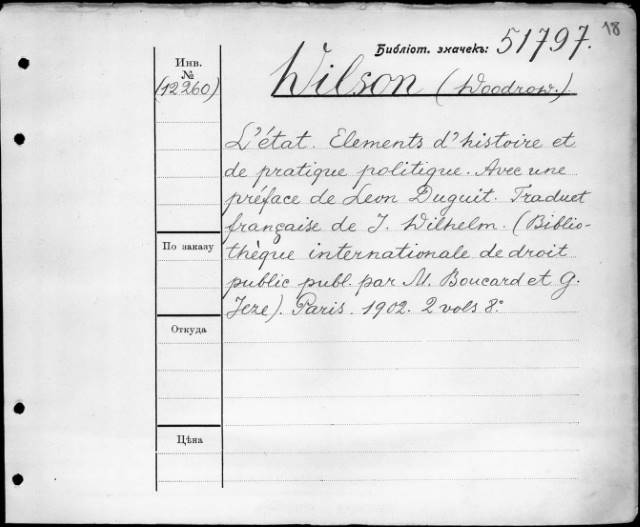 18
Библіот. значекъ: 51797.
Инв.
№
(12260)
Wilson (Woodrow.)
L'état. Elements d'histoire et
de pratique politique. Avec une
préface de Leon Duguit. Traduct
française de J. Wilhelm. (Biblio-
thèque internationale de droit
public publ. par M. Boucard et G.
Jeze). Paris. 1902. 2 vols 8°
По заказу
Откуда
Цѣна